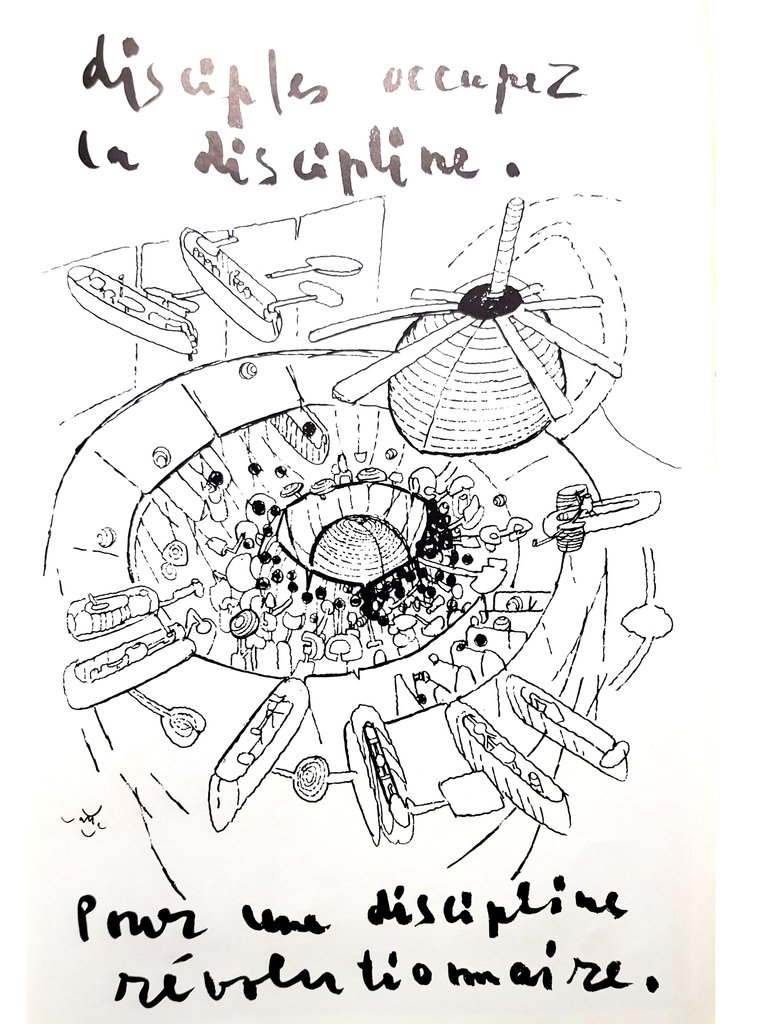 disciples occupez
la discipline.
Pour une discipline
révolutionnaire.